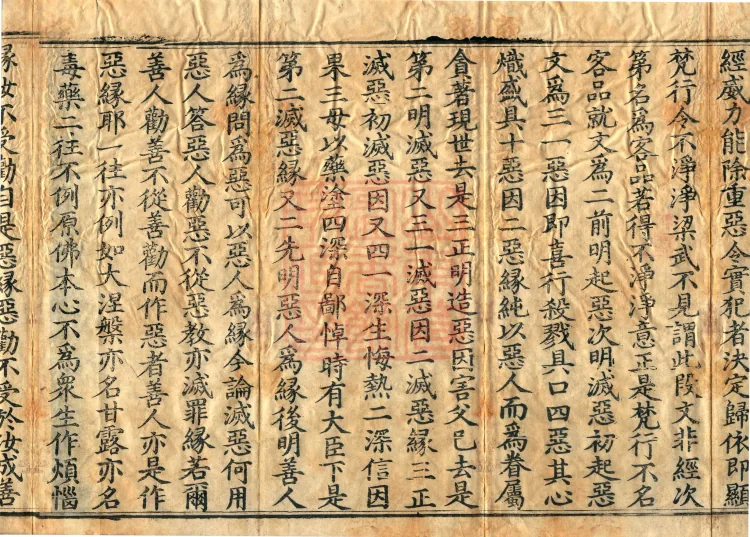 經威力能除重惡令實犯者決定歸依即顯
梵行令不淨淨梁武不見謂此段文非經次
第名為客品若得不淨淨意正是梵行不名
客品就文為二前明起惡次明滅惡初起惡
文為三一惡因即喜行殺戮具口四惡其心
熾盛具十惡因二惡緣純以惡人而為眷屬
貪著現世去是三正明造惡因害父已去是
第二明滅惡又三一滅惡因二滅惡緣三正
滅惡初滅惡因又四一深生悔熱二深信因
果三母以藥塗四深自鄙悼時有大臣下是
第二滅惡緣又二先明惡人為緣後明善人
為緣問為惡可以惡人為緣今論滅惡何用
惡人答惡人勸惡不從惡教亦滅罪緣若爾
善人勸善不從善勸而作惡者善人亦是作
惡緣耶一往亦例如大涅槃亦名甘露亦名
毒藥二往不例原佛本心不為衆生作煩惱
緣汝不受勸自是惡緣惡勸不受於汝成善